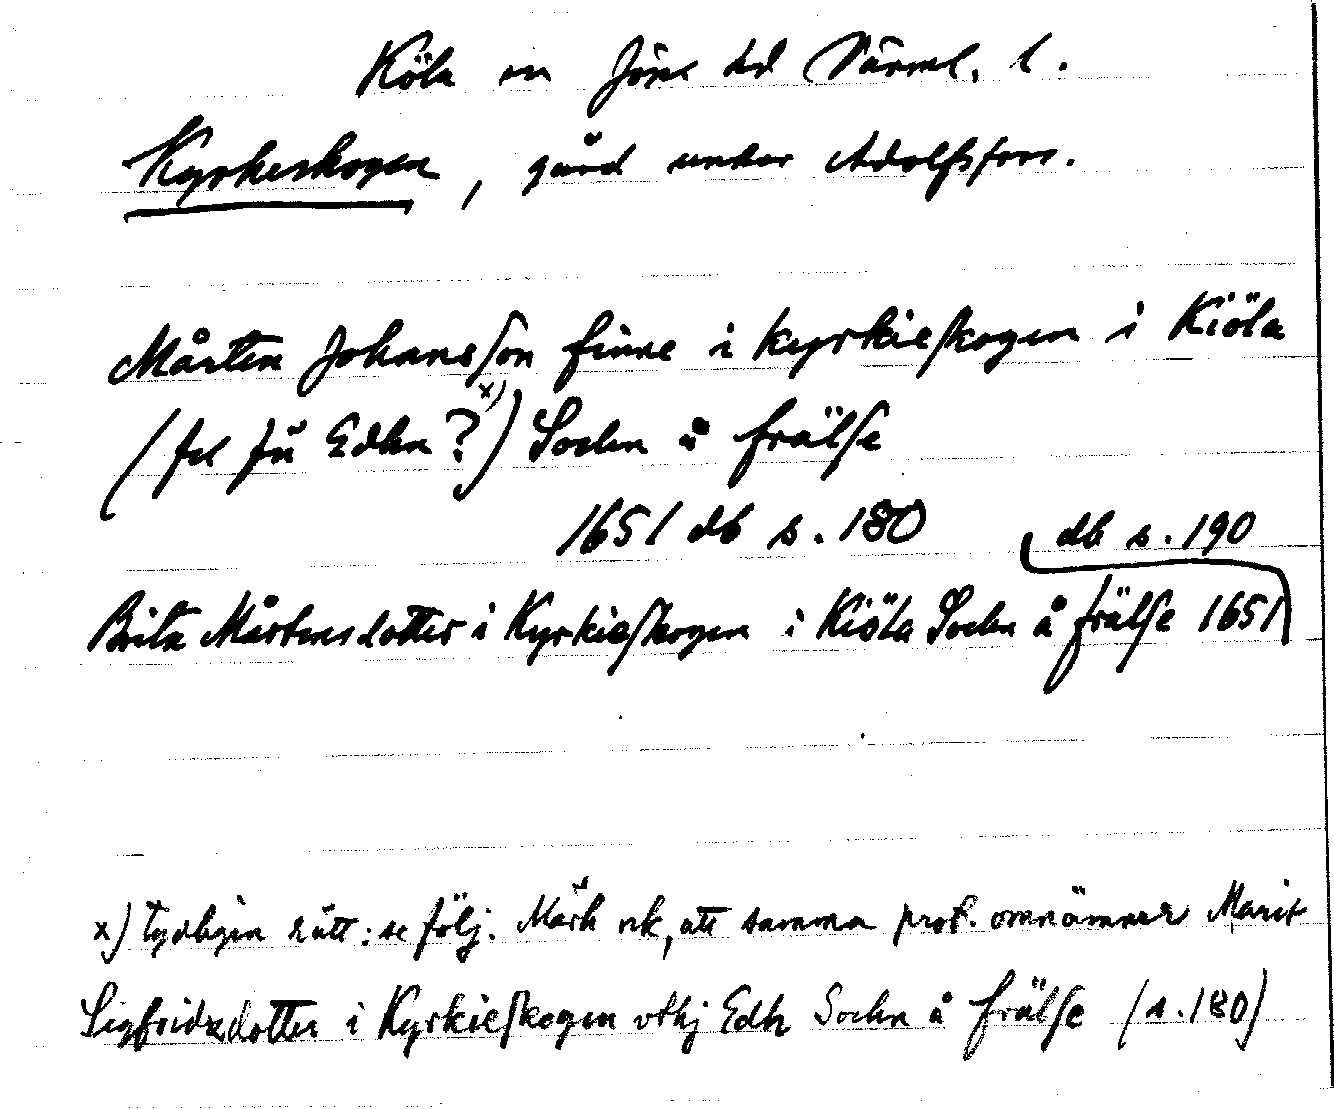 Köla sn Jösse hd Värml. l.
Kyrkeskogen, gård under Adolfsfors.
Mårten Johansson finne i kyrkieskogen i Kiöla
(fel för Edha?)x) Sochn å frälse
1651 db s. 180 db s. 190
Brita Mårtensdotter i Kyrkieskogen i Kiöla Sochn å frälse 1651
x) tydligen rätt: se följ. Märk ock, att samma prot. omnämner Marit
Sigfridzdotter i Kyrkieskogen vthj Edh Sochn å frälse (s. 180)